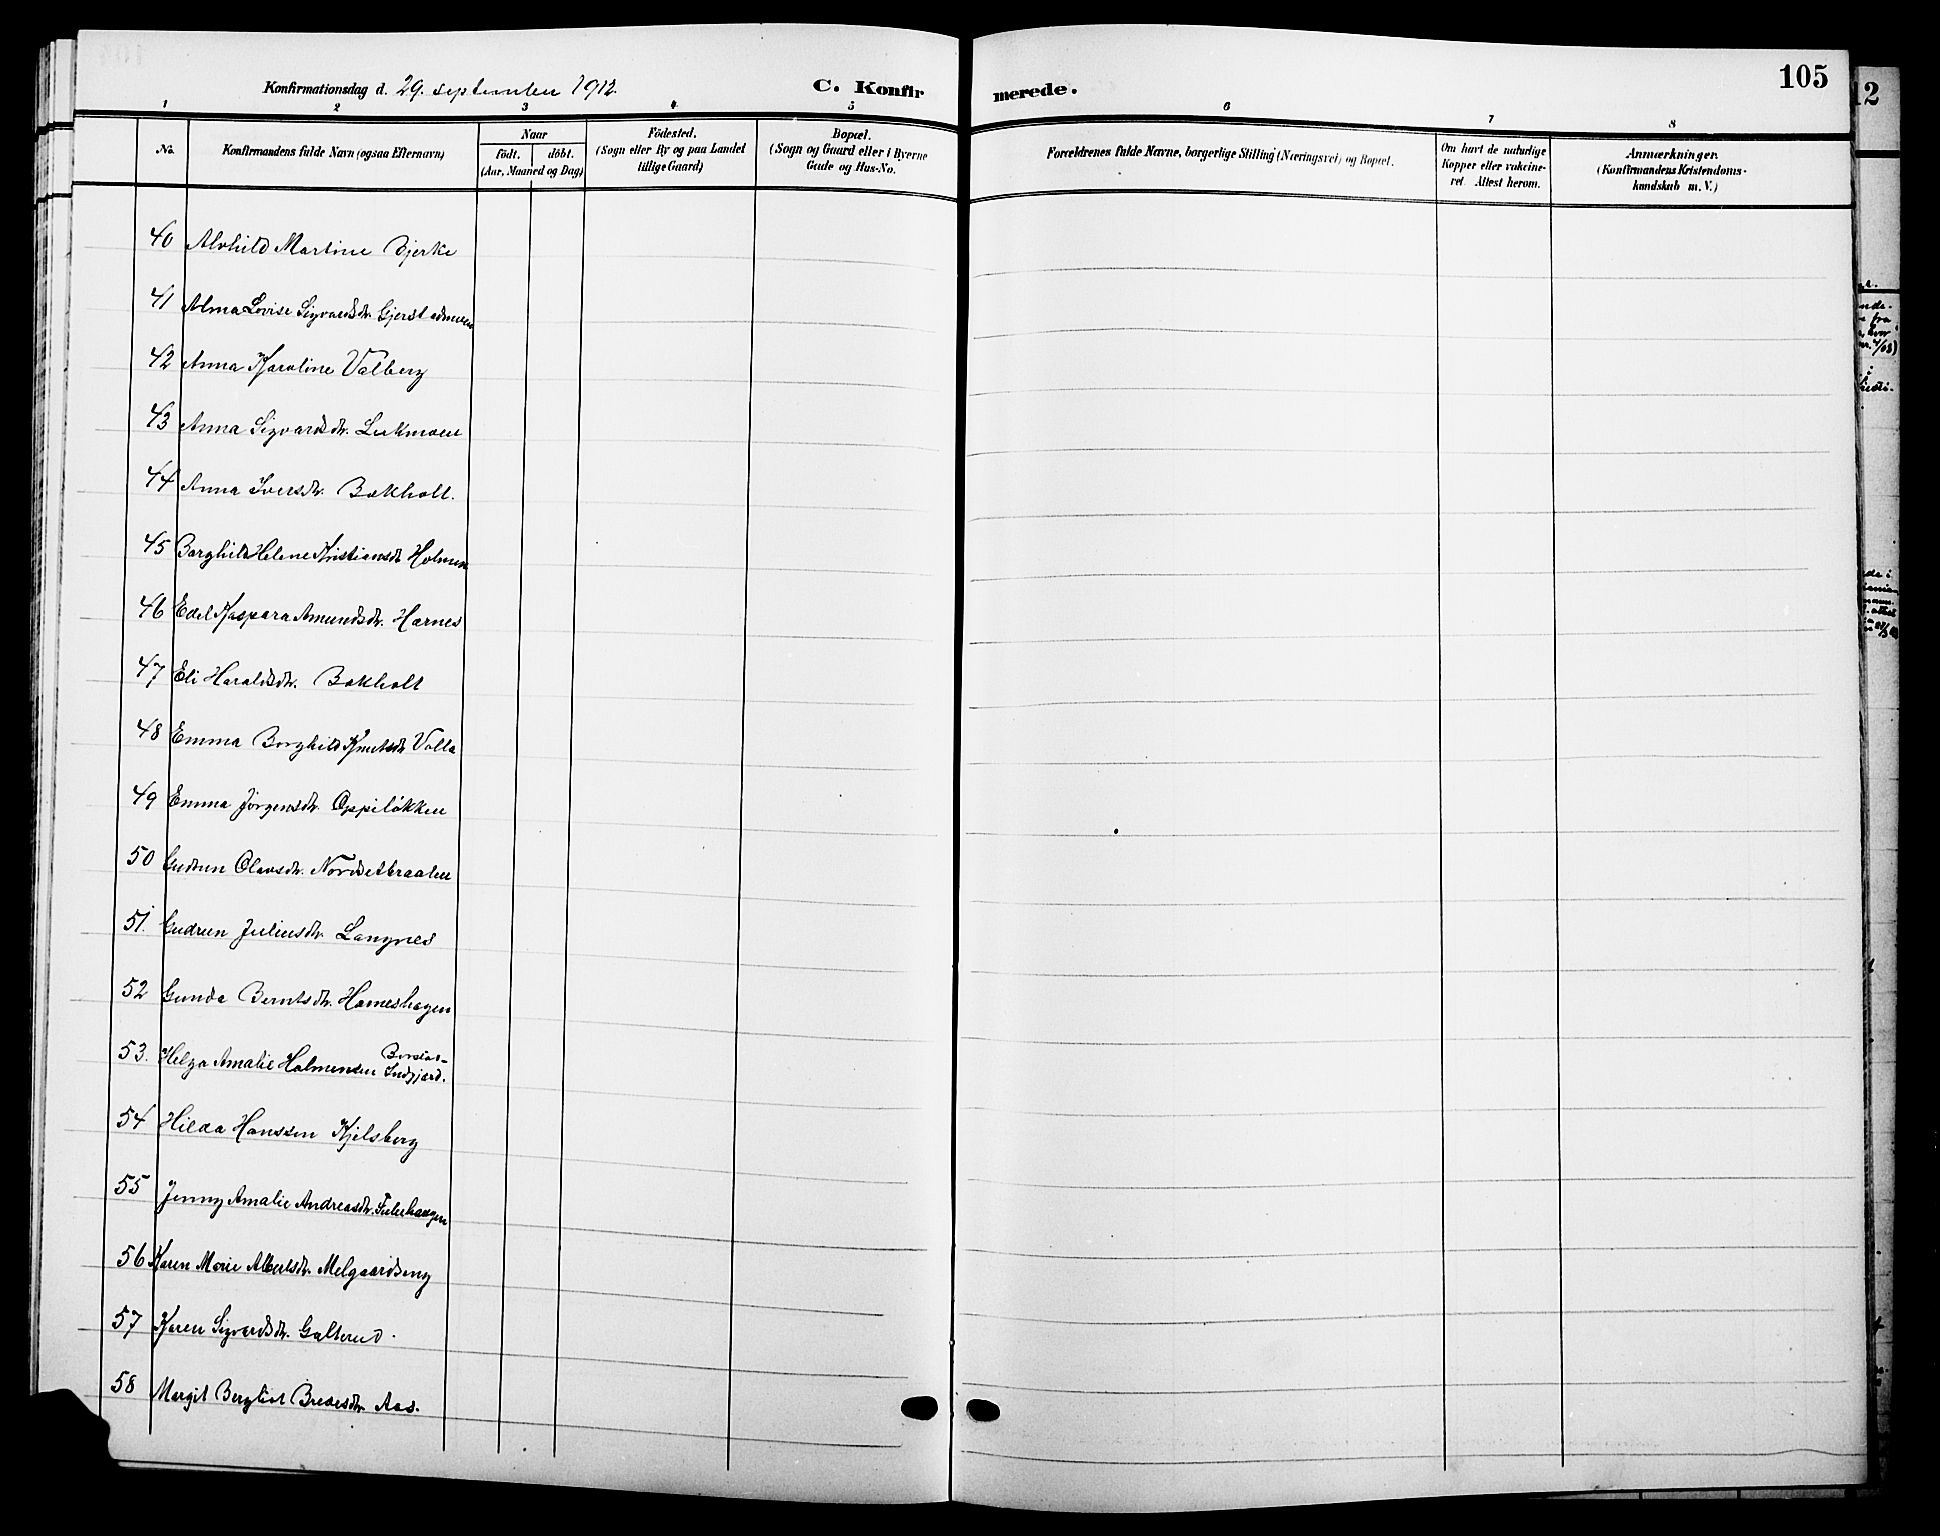 105
Konfirmationsdag d. 29. september 1912.
C. Konfirmerede.
1 2 3 4 5 6 7 8
No.
Konfirmandens fulde Navn (ogsaa Efternavn)
Naar
födt. döbt.
(Aar, Maaned og Dag)
Födested.
(Sogn eller By og paa Landet
tillige Gaard)
Bopæl.
(Sogn og Gaard eller i Byerne
Gade og Hus-No.
Forældrenes fulde Navne, borgerlige Stilling (Næringsvei) og Bopæl.
Om havt de naturlige
Kopper eller vakcine-
ret. Attest herom.
Anmærkninger.
(Konfirmandens Kristendoms-
kundskab m. V.)
40 Alvhild Martine Bjerke
41 Alma Lovise Sigvardsdtr. Gjerstadmoen
42 Anna Karoline Valberg
43 Anna Sigvardsdtr. Leikmoen
44 Anna Iversdtr. Bakholt.
45 Borghild Helene Kristiansdtr Holmen
46 Edel Kaspara Amundsdtr. Harnes
47 Eli Haraldsdtr. Bakholt
48 Emma Borghild Knutsdtr Volla
49 Emma Jörgensdtr. Oppilökken
50 Gudrun Olavsdtr. Nordsetbraaten
51. Gudrun Juliusdtr. Langnes
52 Gunda Berntsdtr. Harneshagen
53. Helga Amalie Halmensen Indgjærd.
54 Hilda Hanssen Kjelsberg
55 Jenny Amalie Andreasdtr. Fuluhaugen
56 Karen Marie Albertsdtr. Melgaardseng
57 Karen Sigvardsdtr. Galterud.
58 Margit Bergliot Bredesdtr. Aas.
12